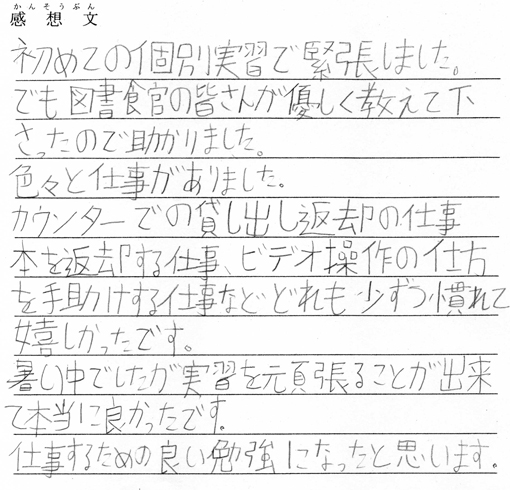 かんそうぶん
感想文
初めての個別実習で緊張しました。
でも図書食官の皆さんが優しく教えて下
さったので助かりました。
色々と仕事がありました。
カウンターでの貸し出し返却の仕事
本を返却する仕事、ビデオ操作の仕方
を手助けする仕事などどれも少ずつ慣れて
嬉しかったです。
暑い中でしたが実習を頑張ることが出来
て本当に良かったです。
仕事するための良い勉強になったと思います。